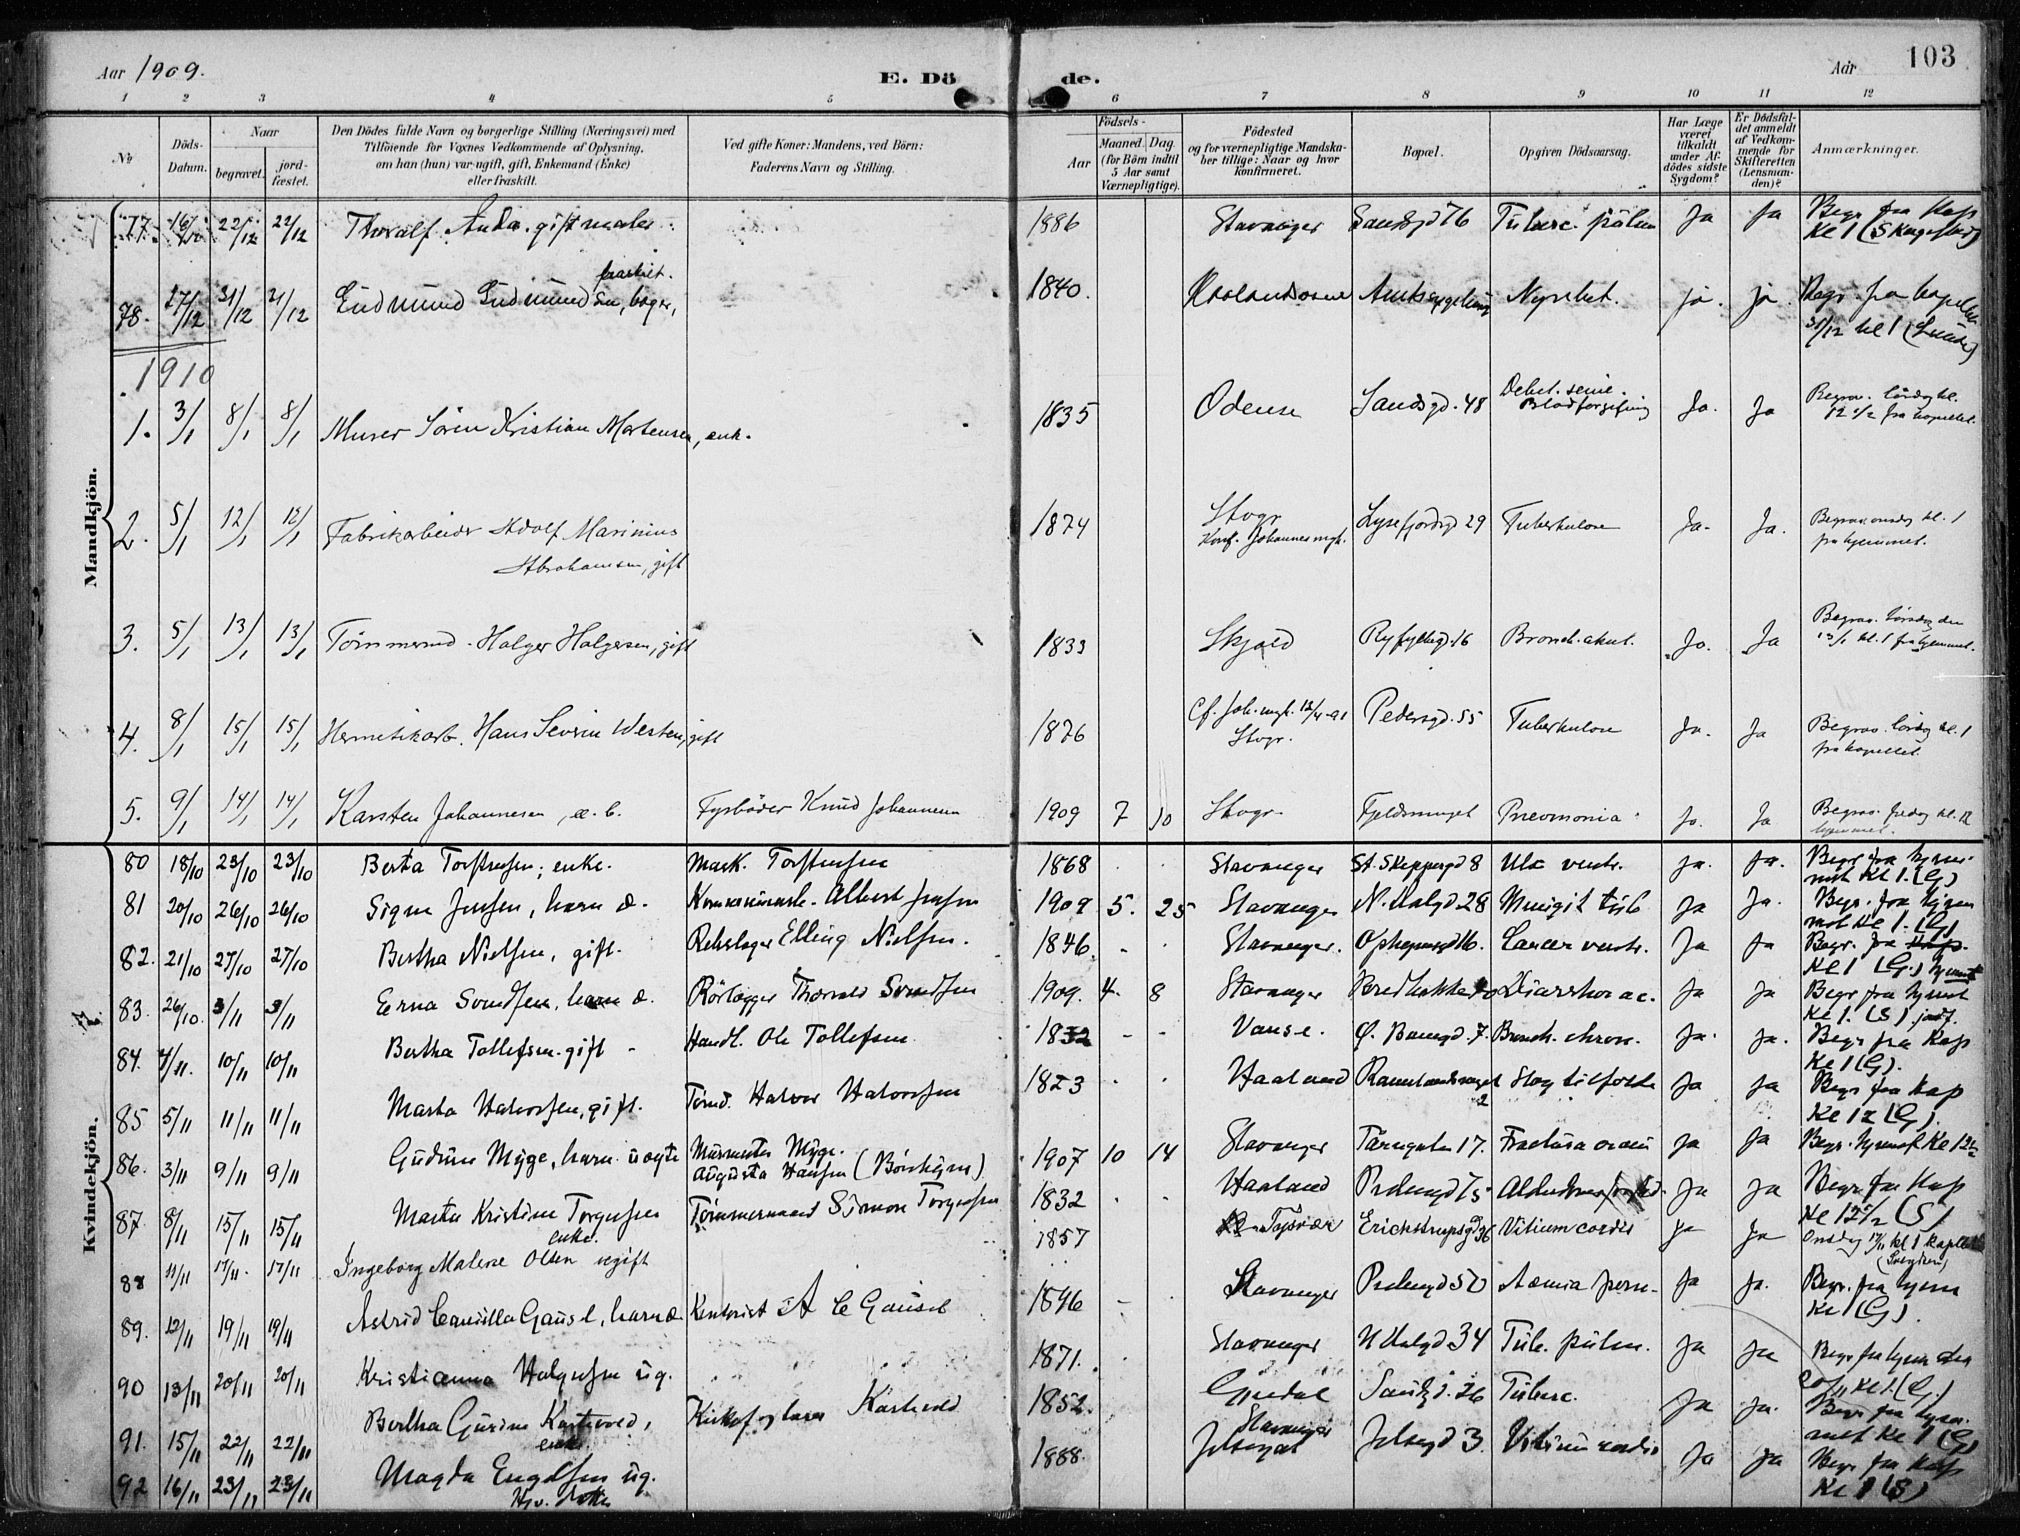 Aar 1909.
E. Dö de.
Aar
103
1 2 3 4 5 6 7 8 9 10 11 12
No
Döds-Datum.
Naar
begravet.
jord-fæstet.
Den Dödes fulde Navn og borgerlige Stilling (Næringsvei) med
Tilföiende for Voxnes Vedkommende af Oplysning,
om han (hun) var ugift, gift, Enkemand (Enke)
eller fraskilt.
Ved gifte Koner: Mandens, ved Börn:
Faderens Navn og Stilling.
Födsels-
Aar
Maaned. Dag.
(for Börn indtil
5 Aar samt
Værnepligtige).
Födested
og for værnepligtige Mandska-
ber tillige: Naar og hvor
konfirmeret.
Bopæl.
Opgiven Dödsaarsag.
Har Læge
været
tilkaldt
under Af-
dödes sidste
Sygdom?
Er Dödsfal-
det anmeldt
af Vedkom-
mende for
Skifteretten
(Lensman-
den)?
Anmærkninger.
Mandkjön.
77. 16/12 22/12 22/12 Thoralf Anda. gift maler 1886 Stavanger Sandsgd 76 Tuberc. pulm Ja Ja Begr. fra Kap Kl 1
78. 27/12 31/12 31/12 Gudmund Gudmundsen, bager, fraskilt. 1840. Amtssygehus Ja. Ja. Begr. fra kapellet 31/12 kl 1 (Lunde)
1910
1. 3/1 8/1 8/1 Murer Sören Kristian Mortensen, enk. 1835 Odense Sandsgd. 48 Debil. senil. Blodforgiftning Ja. Ja Begrav. lördag kl. 12 1/2 fra kapellet.
2. 5/1 12/1 12/1 Fabrikarbeider Adolf Marinius
Abrahamsen, gift 1874 Stvgr Konf. Johannesmgh. Lysefjordsgd 29 Tuberkulose Ja. Ja. Begrav. onsdg kl. 1 fra hjemmet.
3. 5/1 13/1 13/1 Tömmermd. Holger Holgersen, gift 1833 Skjold Ryfylkegd. 16 Bronch. akut. Ja. Ja Begrav. den 13/1 kl. 1 fra hjemmet.
4. 8/1 15/1 15/1 Hermetikarb. Hans Severin Westen, gift 1876 Cf. Joh. mgh. 12/4-91 Stvgr. Pedersgd. 55 Tuberkulose Ja. Ja Begrav. lördag kl. 1 fra kapellet.
5. 9/1 14/1 14/1 Karsten Johannesen, æ. b. Fyrböder Knud Johannesen 1909 7 10 Stvgr. Pneumonia Ja. Ja Begrav. fredag kl. 12 hjemmet.
Kvindekjön.
80 18/10 23/10 23/10 Berta Torstensen, enke. Mask. Torstensen 1868 Stavanger St. Skippergd 8 Ulc ventr. Ja. Ja. Begr fra hjemmet Kl 1. (G)
81 20/10 26/10 26/10 Signe Jensen, barn æ. Albert Jensen 1909 5. 25 Stavanger 28 Menigit tub Ja Ja. Begr. fra hjemmet Kl 1. (G)
82. 21/10 27/10 27/10 Bertha Nielsen, gift. Rebslager Elling Nielsen. 1846. - - Stavanger. Cancer ventr. Ja Ja Begr. fra Kap. Kl 1 (G.) hjemmet
83. 26/10. 3/11 3/11 Erna Svendsen, barn æ. Rörlægger Thorvald Svendsen 1909. 4. 8 Stavanger Diarrhoe ac. Ja Ja Begr fra hjemmet Kl 1. (S)
84. 4/11. 10/11 10/11 Bertha Tollefsen. gift Handl. Ole Tollefsen 1832 - - Vanse. 7. Bronch. chron. Ja. Ja. Begr fra Kap Kl 1 (G).
85 5/11 11/11 11/11 Marta Halvorsen, gift. Tömd. Halvor Halvorsen 1823 Haaland 2 Slagtilfælde Ja Ja Begr fra Kap Kl 12 (G)
86. 3/11 9/11 9/11 Gudrun Myge, barn uægte Murmester Myge.
Augusta Hansen (Börnhjem) 1907 10 14 Stavanger Tärngaten 17. Fractura cranii Ja Ja Begr. hjemmet Kl 12 1/2
87. 8/11 15/11 15/11 Marta Kristine Torgersen enke. Tömmermand Simon Torgersen 1832 Haaland Pedersgd 75 Ja Ja Begr. fra Kap Kl 12 1/2 (S)
88 11/11 17/11. 17/11 Ingeborg Malene Olsen ugift 1857 Tysvær Erichstrupsgd 36 Vitium cordis Ja Ja Onsdag 17/11 kl 1 kapellet
89. 12/11 19/11 19/11 Astrid Camilla Gausel, barn æ. Kontorist A C Gausel 1896 - Stavanger Pedersgd 50 Ja Ja. Begr. fra hjem Kl 1 (G).
90 13/11 20/11 20/11 Kristianna Halgersen ug. 1871. Stavanger 34 Tub. pulm. Ja Ja Begr fra hjem den 20/11 Kl 1. (G.)
91. 15/11 22/11 22/11 Bertha Gurine Kastevold, enke. Kastevold 1852. Gjesdal Sandsgd. 26 Tuberc. Ja Ja. Begr fra hjemmet Kl 1 (G)
92 16/11 23/11 23/11 Magda Engelsen ug. 1888. Stavanger Jelsegat Jelsegd 3 Vitium cordis Ja Ja Begr fra Kap Kl 1 (S)